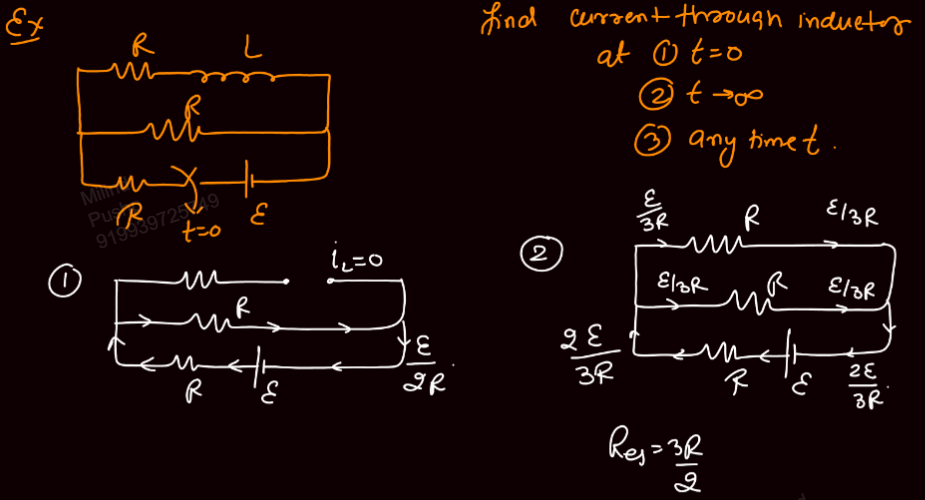 Ex
find current through inductor
at ① t=0
② t→∞
③ any time t.
R L
R
R ε
t=0
919939725749
① i_L=0
R
R ε
ε/2R.
②
ε/3R R ε/3R
ε/3R R ε/3R
2ε/3R R ε 2ε/3R.
Req = 3R/2